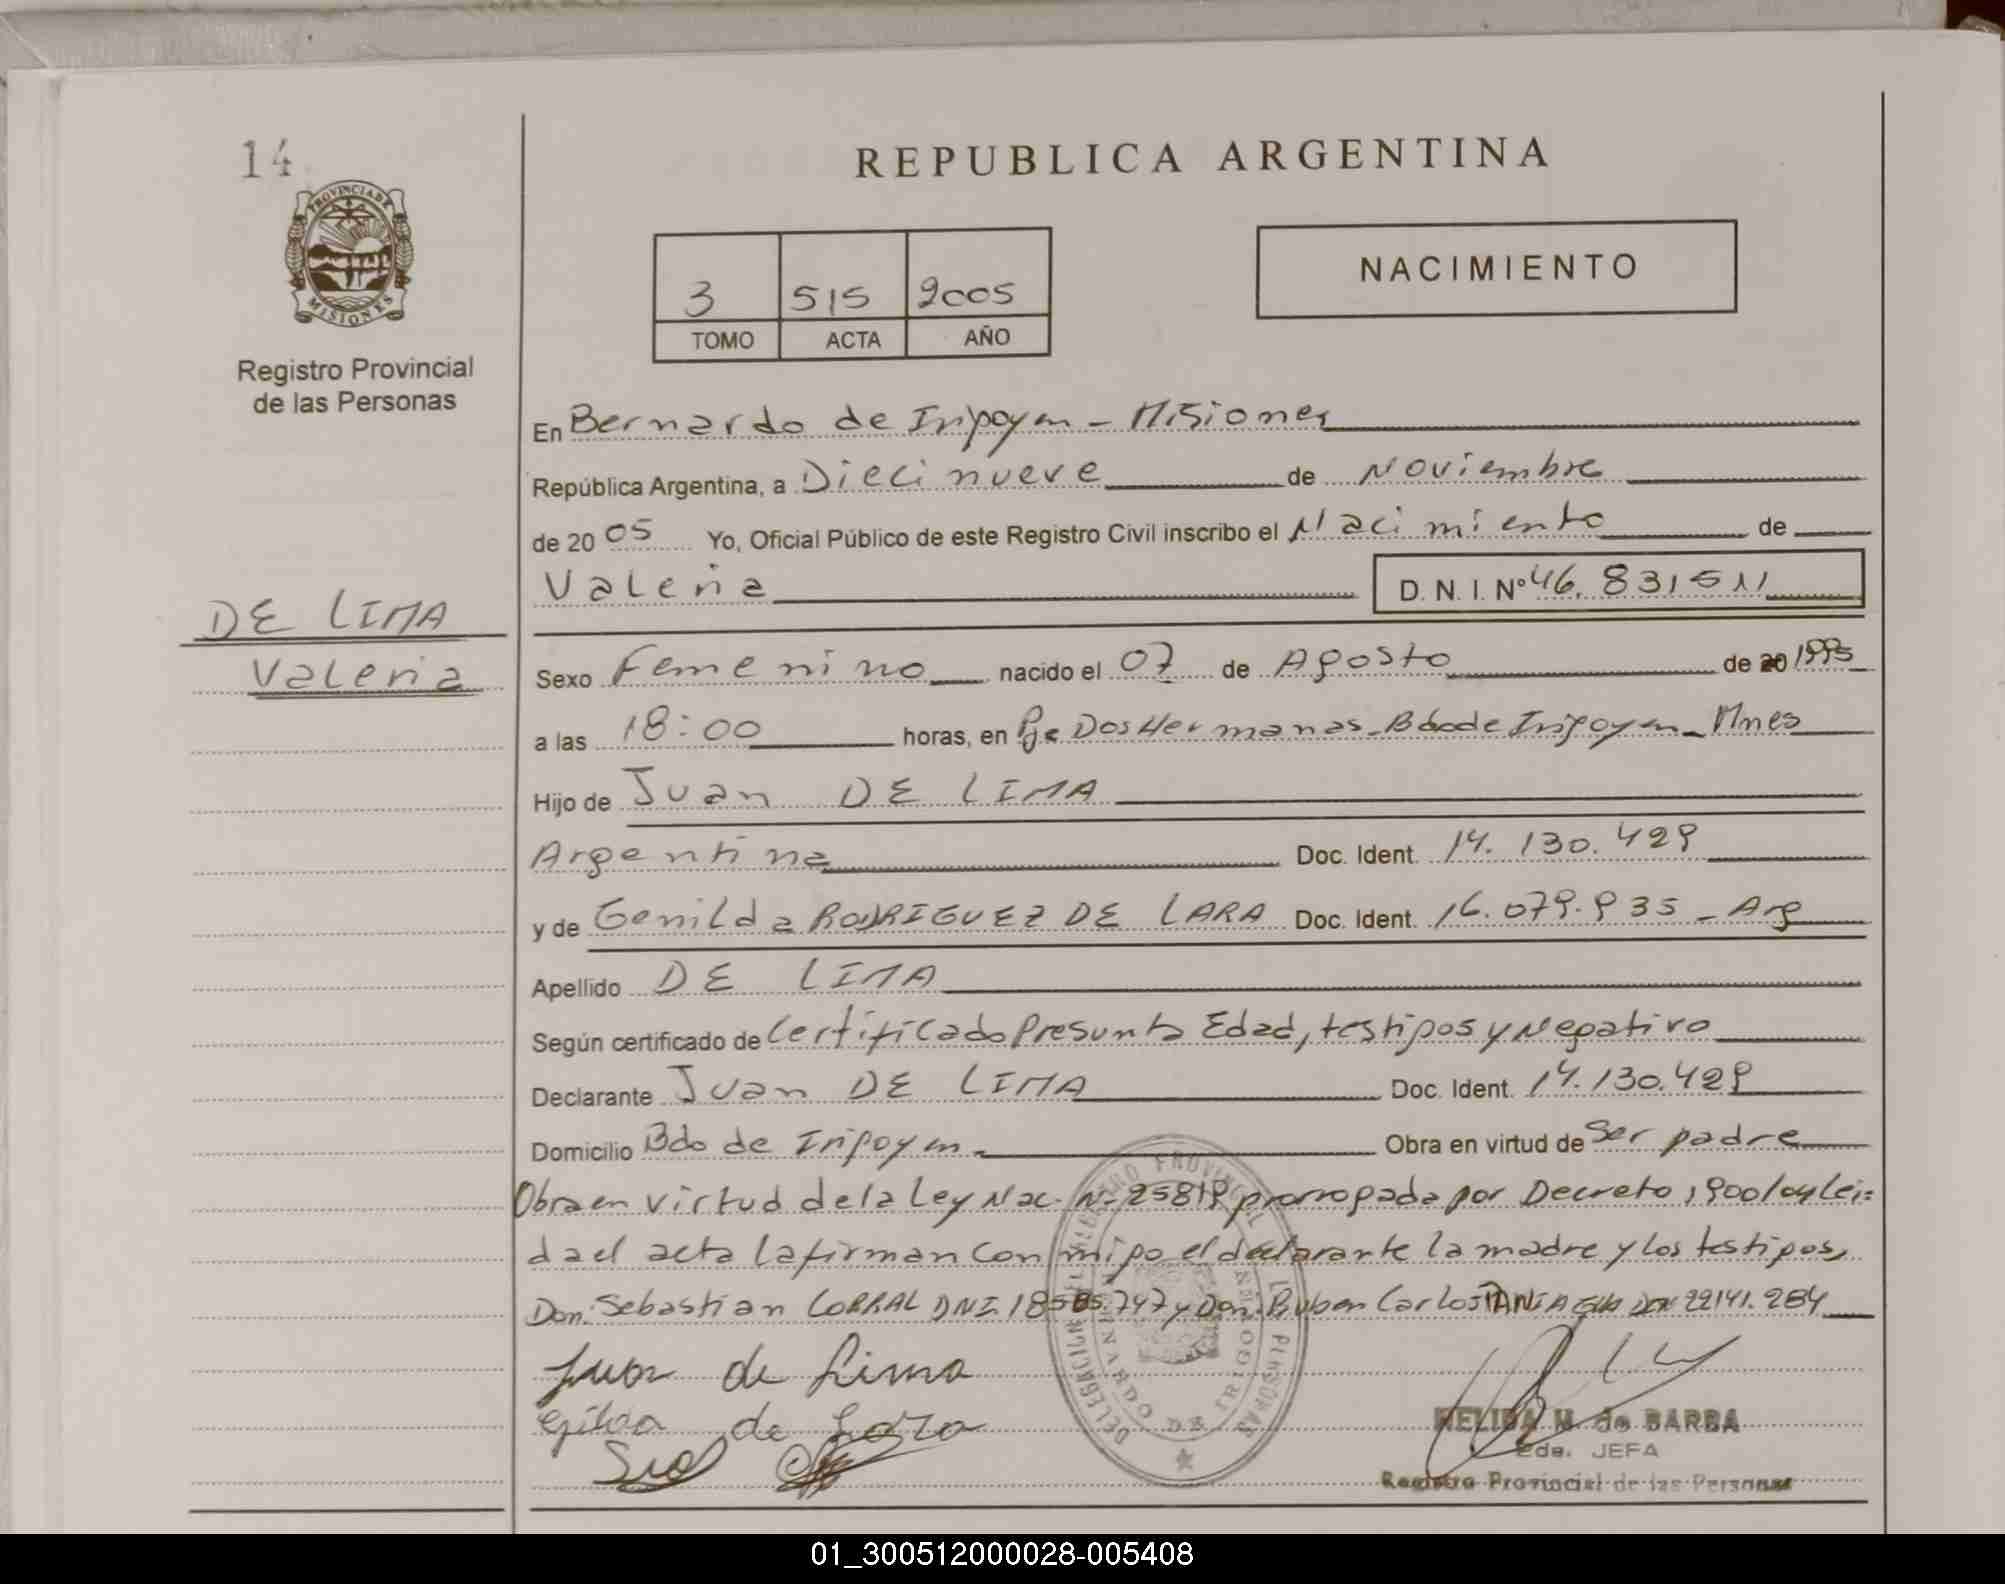 14
PROVINCIA DE
MISIONES
Registro Provincial
de las Personas
DE LIMA
Valeria
REPUBLICA ARGENTINA
3 515 2005
TOMO ACTA AÑO
NACIMIENTO
En Bernardo de Irigoyen - Misiones
República Argentina, a Diecinueve de Noviembre
de 2005 Yo, Oficial Público de este Registro Civil inscribo el Nacimiento de
Valeria D. N. I. Nº 46.831511
Sexo Femenino nacido el 07 de Agosto de 20 1995
a las 18:00 horas, en Pje Dos Hermanas - Bdo de Irigoyen - Mnes
Hijo de Juan DE LIMA
Argentina Doc. Ident. 14.130.429
y de Genilda RODRIGUEZ DE LARA Doc. Ident. 16.079.935 - Arg
Apellido DE LIMA
Según certificado de Certificado Presunta Edad, testigos y Negativo
Declarante Juan DE LIMA Doc. Ident. 14.130.429
Domicilio Bdo de Irigoyen - Obra en virtud de Ser padre
Obra en virtud de la Ley Nac. Nº 25819 prorrogada por Decreto 1900/04 lei=
da el acta la firman conmigo el declarante la madre y los testigos,
Don: Sebastian CORRAL DNI 18.747 y Don: Ruben Carlos DNI 22141.284
Juan de Lima
Gilda de Lara
DELEGACION DEL REGISTRO PROVINCIAL DE LAS PERSONAS
BERNARDO DE IRIGOYEN
HELIDA M. de BARBA
JEFA
Registro Provincial de las Personas
01_300512000028-005408